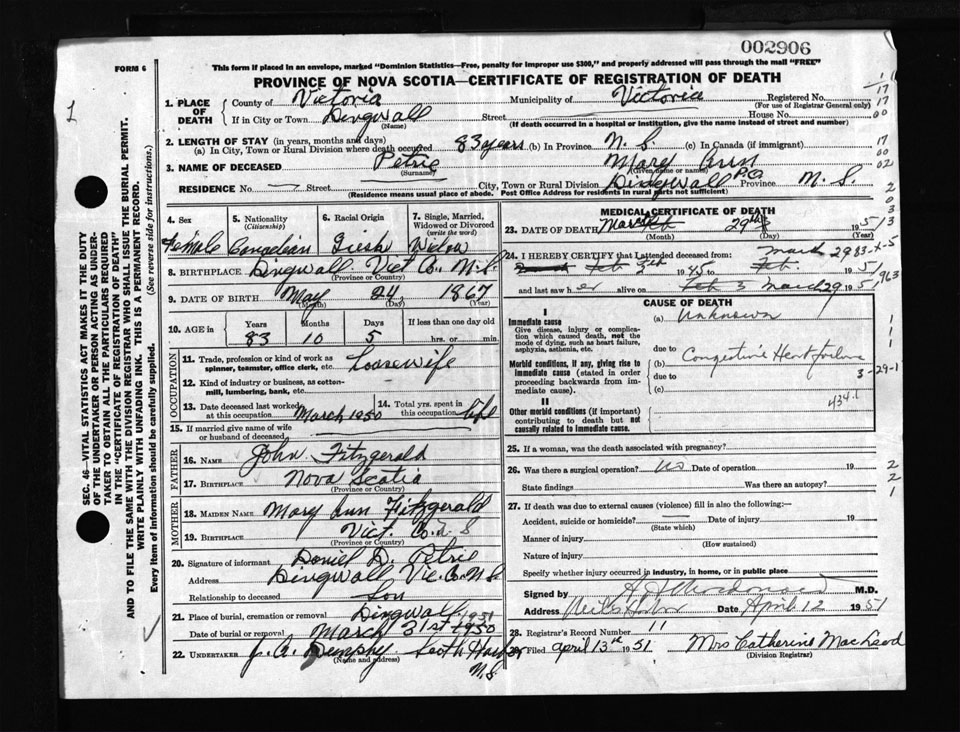 002906
FORM 6
This form if placed in an envelope, marked "Dominion Statistics—Free, penalty for improper use $300," and properly addressed will pass through the mail "FREE"
PROVINCE OF NOVA SCOTIA—CERTIFICATE OF REGISTRATION OF DEATH
SEC. 46—VITAL STATISTICS ACT MAKES IT THE DUTY
OF THE UNDERTAKER OR PERSON ACTING AS UNDER-
TAKER TO OBTAIN ALL THE PARTICULARS REQUIRED
IN THE "CERTIFICATE OF REGISTRATION OF DEATH"
AND TO FILE THE SAME WITH THE DIVISION REGISTRAR WHO SHALL ISSUE THE BURIAL PERMIT.
WRITE PLAINLY WITH UNFADING INK. THIS IS A PERMANENT RECORD.
Every item of information should be carefully supplied. (See reverse side for instructions.)
1. PLACE OF DEATH
County of Victoria Municipality of Victoria Registered No.
(For use of Registrar General only)
If in City or Town Dingwall Street House No.
(Name) (If death occurred in a hospital or institution, give the name instead of street and number)
2. LENGTH OF STAY (in years, months and days)
(a) In City, Town or Rural Division where death occurred 83 years (b) In Province N. S. (c) In Canada (if immigrant)
3. NAME OF DECEASED Petrie Mary Ann
(Surname) (Given name or names)
RESIDENCE No. — Street City, Town or Rural Division Dingwall P.O. Province N. S.
(Residence means usual place of abode. Post Office Address for residents in rural parts not sufficient)
4. Sex 5. Nationality (Citizenship) 6. Racial Origin 7. Single, Married, Widowed or Divorced (write the word)
Female Canadian Irish Widow
8. BIRTHPLACE Dingwall Vict Co. N.S.
(Province or Country)
9. DATE OF BIRTH May 24 1867
(Month) (Day) (Year)
10. AGE in Years Months Days If less than one day old
83 10 5 hrs. or min.
OCCUPATION
11. Trade, profession or kind of work as spinner, teamster, office clerk, etc. Housewife
12. Kind of industry or business, as cotton-mill, lumbering, bank, etc.
13. Date deceased last worked at this occupation March 1950 14. Total yrs. spent in this occupation Life
15. If married give name of wife or husband of deceased
FATHER
16. NAME John Fitzgerald
17. BIRTHPLACE Nova Scotia
(Province or Country)
MOTHER
18. MAIDEN NAME Mary Ann Fitzgerald
19. BIRTHPLACE Vict. Co. N. S
(Province or Country)
20. Signature of informant Daniel D. Petrie
Address Dingwall, Vic. Co. N.S.
Relationship to deceased Son
21. Place of burial, cremation or removal Dingwall
Date of burial or removal March 31st 1950 1951
22. UNDERTAKER J. A. Dempsy South Harbor N.S.
(Name and address)
MEDICAL CERTIFICATE OF DEATH
23. DATE OF DEATH March 29th 1951
(Month) (Day) (Year)
24. I HEREBY CERTIFY that I attended deceased from:
Feb 1945 to Feb. March 29 1951
and last saw her alive on Feb 3 March 29 1951
CAUSE OF DEATH
I
Immediate cause
Give disease, injury or complication which caused death, not the mode of dying, such as heart failure, asphyxia, asthenia, etc.
(a) Unknown
due to
Morbid conditions, if any, giving rise to immediate cause (stated in order proceeding backwards from immediate cause).
(b) Congestive Heart failure
due to 3-29-1
(c) 434.1
II
Other morbid conditions (if important) contributing to death but not causally related to immediate cause.
25. If a woman, was the death associated with pregnancy?
26. Was there a surgical operation? No Date of operation 19
State findings Was there an autopsy?
27. If death was due to external causes (violence) fill in also the following:
Accident, suicide or homicide? — Date of injury 19
(State which)
Manner of injury
(How sustained)
Nature of injury
Specify whether injury occurred in industry, in home, or in public place
Signed by M.D.
Address Neils Harbor Date April 12 1951
28. Registrar's Record Number 11
29. Filed April 13th 1951 Mrs Catherine MacLeod
(Division Registrar)